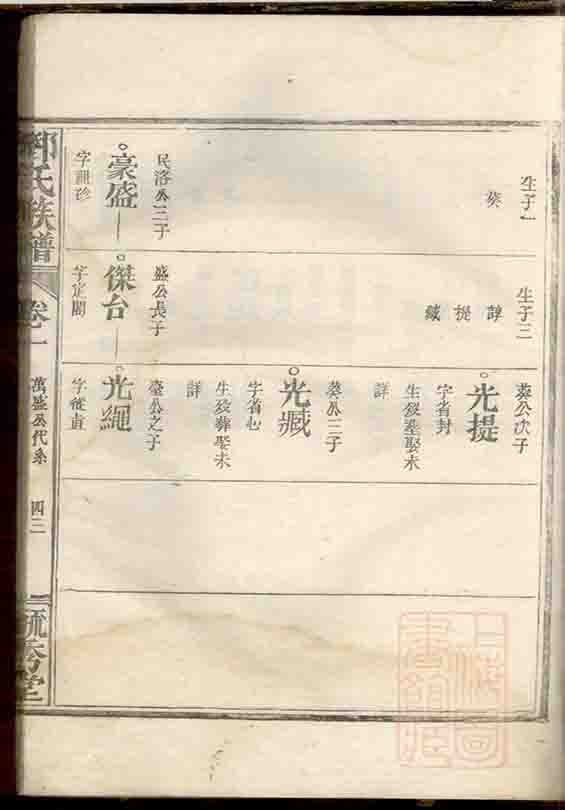 生子一
葵
民洛公三子
豪盛
字
生子三
諄
提
緘
盛公長子
傑台
字定閣
葵公次子
光提
字省封
生歿葬娶未
詳
葵公三子
光臧
字省心
生歿葬娶未
詳
臺公之子
光繩
字從直
氏族譜
卷一
萬盛公代系
四二
流芳堂
上海圖
書館藏